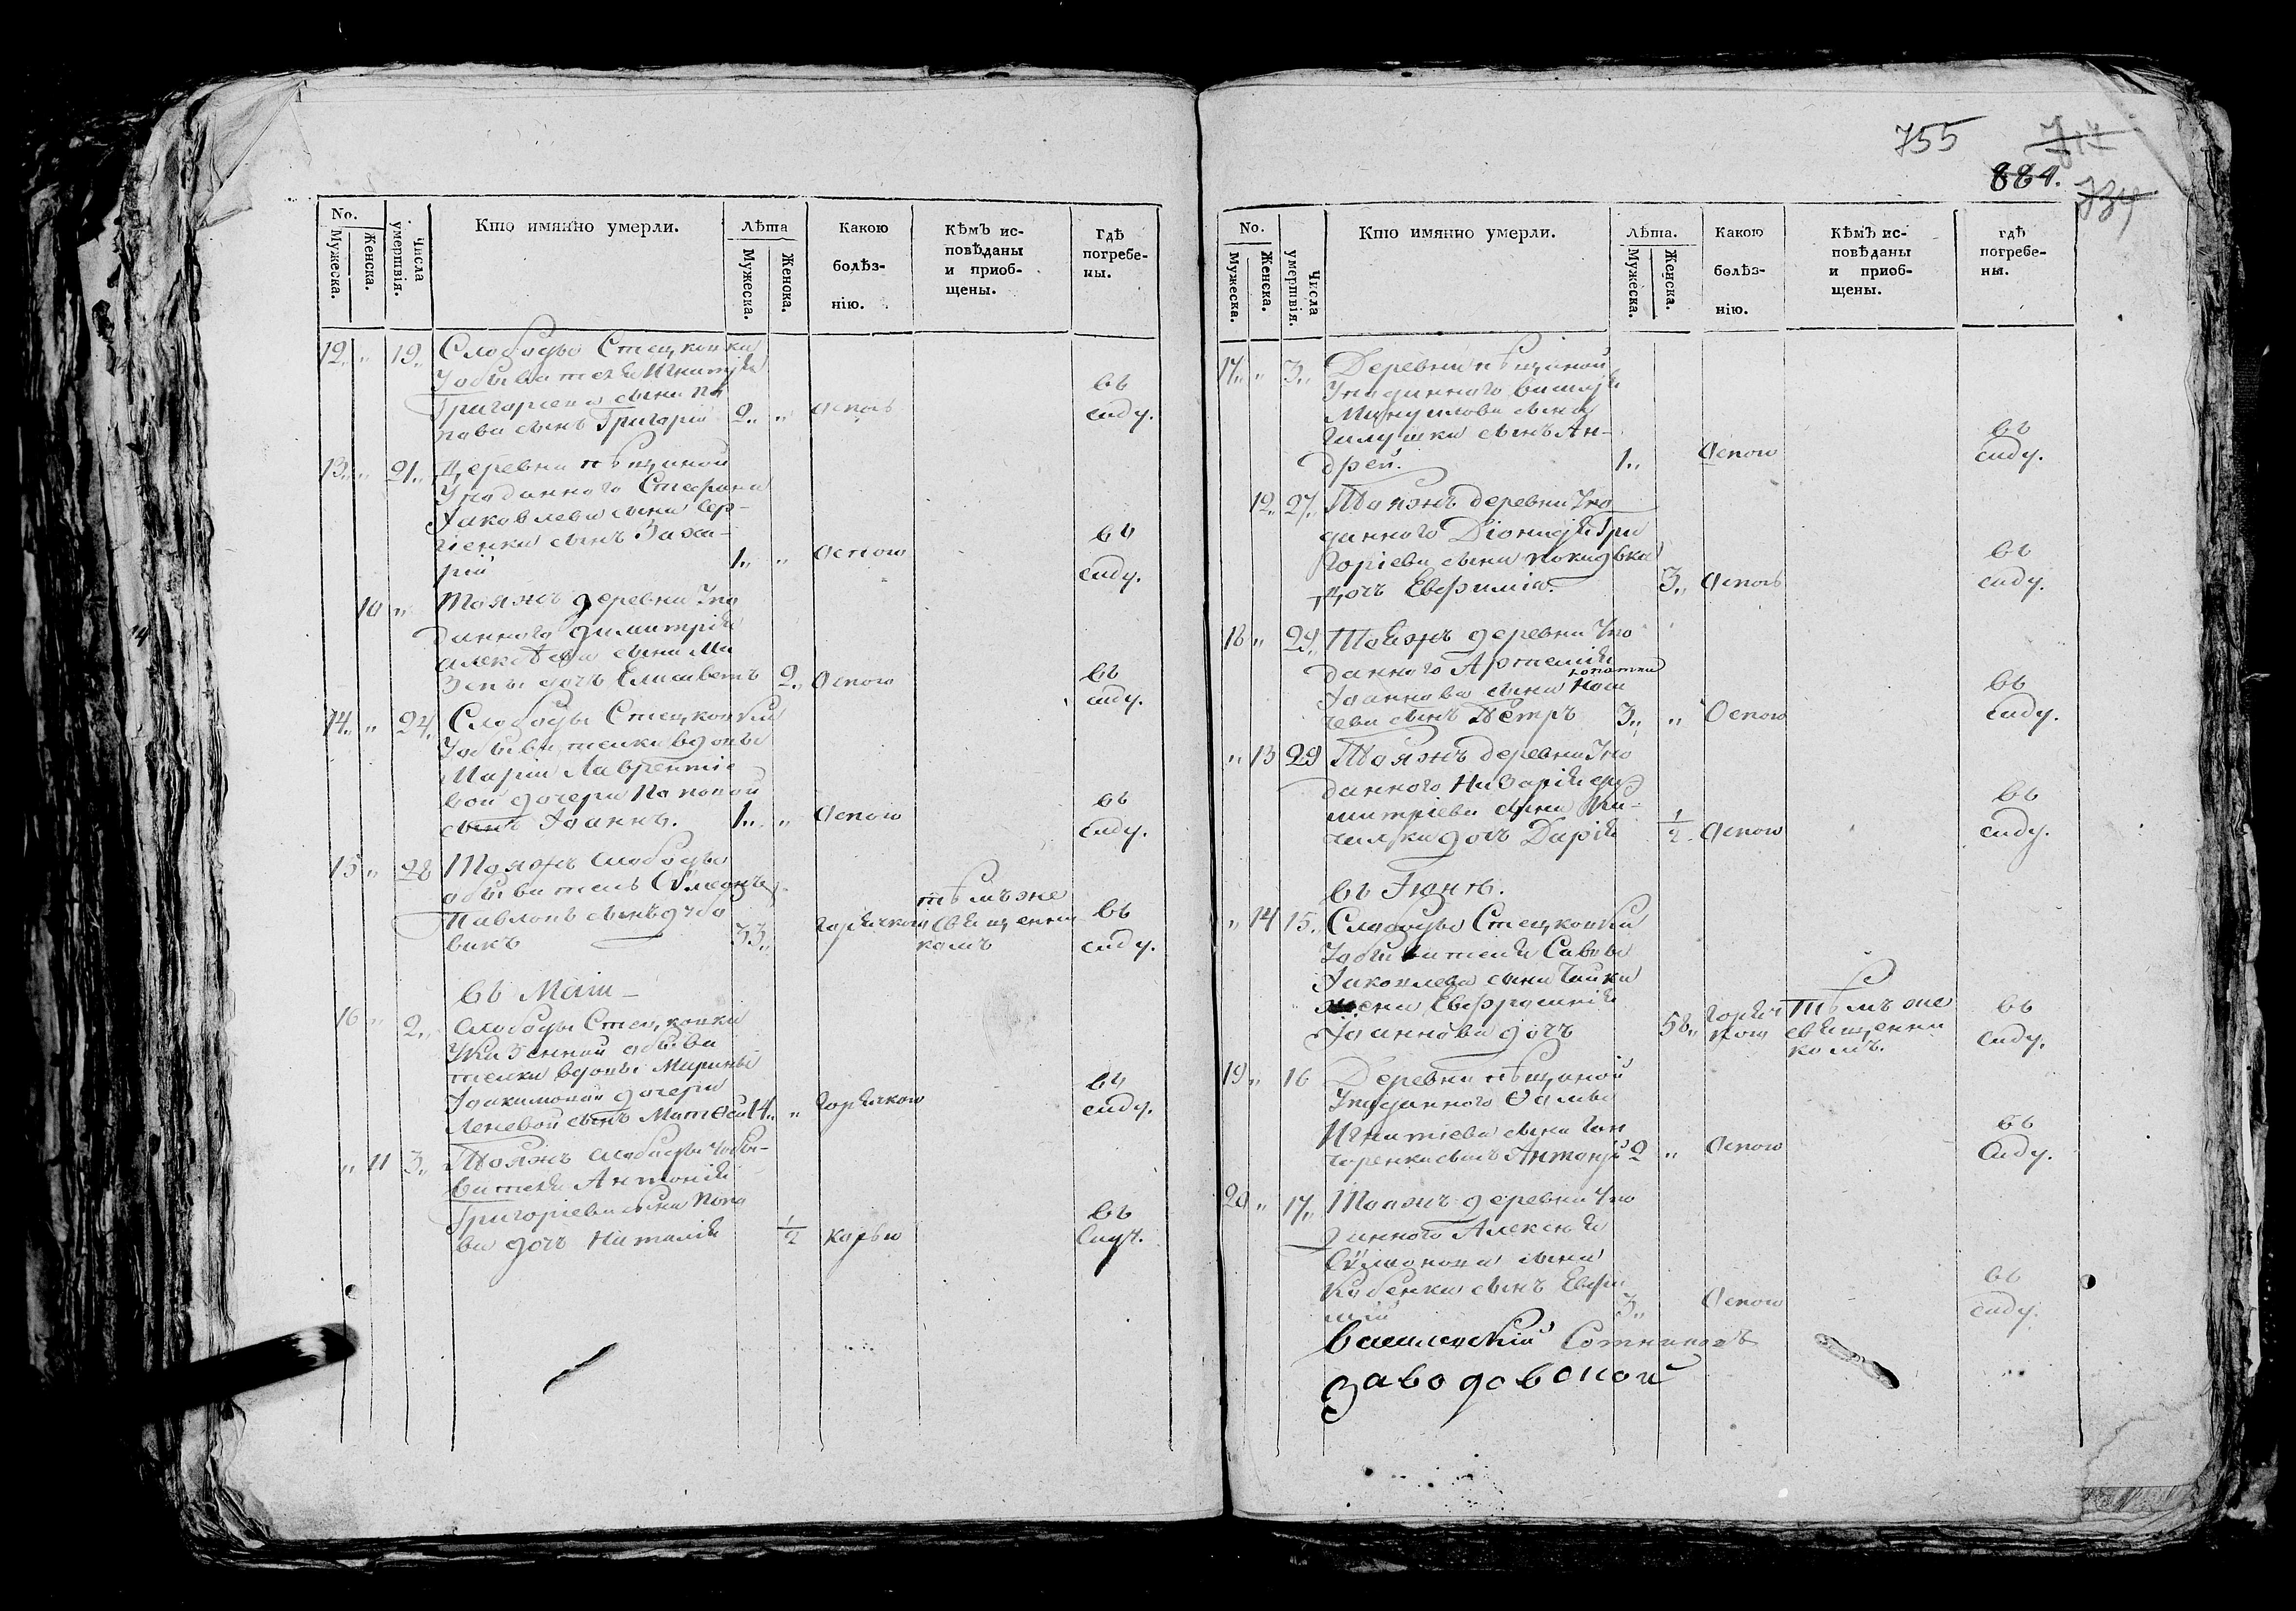 No.
Мужеска.
Женска.
Числа умертвія.
Кто имянно умерли.
Лѣта
Мужеска.
Женска.
Какою
болѣз-
нію.
Кѣмъ ис-
повѣданы
и приоб-
щены.
Гдѣ
погребе-
ны.
12 " 19 Слободы Стецковки
Григоріева сына По
пова сынъ Григорій 2 " оспою въ саду.
13 " 21 Деревни Пѣщаной
Уподанного Стефана
Іаковлева сына Сер-
гіенка сынъ Заха-
рій 1 " Оспою въ саду.
10 " Тояжъ деревни Упо
данного Димитрія
Алексѣева сына Ма
зепы дочь Елисаветъ 2 Оспою въ саду.
14 " 24 Слободы Стецковки
вдовы
Маріи Лаврентіе
вой дочери Поповой
сынъ Іоаннъ. 1 " Оспою въ саду.
15 " 28 Тояжъ слободы
обыватель Сѵмеонъ
Павловъ сынъ
викъ 33 горячкою тѣмъ же священни комъ въ саду.
въ Маіи
16 " 2 Слободы Стецковки
Указенной обыва
телки вдовы Марины
Іоакимовой дочери
сынъ Матѳей 14 " горячкою въ саду.
" 11 3 Тояжъ слободы
вателя Антонія
Григоріева сына Попо
ва дочь Наталія 1/2 корью въ саду.
755
714
884.
734
No.
Мужеска.
Женска.
Числа умертвія.
Кто имянно умерли.
Лѣта.
Мужеска.
Женска.
Какою
болѣз-
нію.
Кѣмъ ис-
повѣданы
и приоб-
щены.
гдѣ
погребе-
ны.
17 " 3 Деревни Пѣщаной
Уподанного
Мануилова сына
Галушки сынъ Ан-
дрей. 1 Оспою въ саду.
12 27 Тояжъ деревни Упо
данного Діонисія Гри
горіева сына
дочь Евфимія. 3 Оспою въ саду.
18 " 29 Тояжъ деревни Упо
данного Артемія
Іоаннова сына
сынъ Петръ 3 " Оспою въ саду.
" 13 29 Тояжъ деревни Упо
данного Назарія Ди
митріева сына
дочь Дарія 1/2 Оспою въ саду.
въ Іюнѣ.
" 14 15 Слободы Стецковки
Саввы
Іаковлева сына Чайки
жена Евфросинія
Іоаннова дочь 58 горяч кою Тѣмъ же священни комъ. въ саду.
19 " 16 Деревни Пѣщаной
Уподанного Ѳомы
Игнатіева сына Гон
чаренка сынъ Антоній 2 " Оспою въ саду.
20 " 17 Тояжъ деревни Упо
данного Алексія
Сѵмеонова сына
сынъ Евфи
мій 3 Оспою въ саду.
Василевскій Сотниковъ
Заводовской